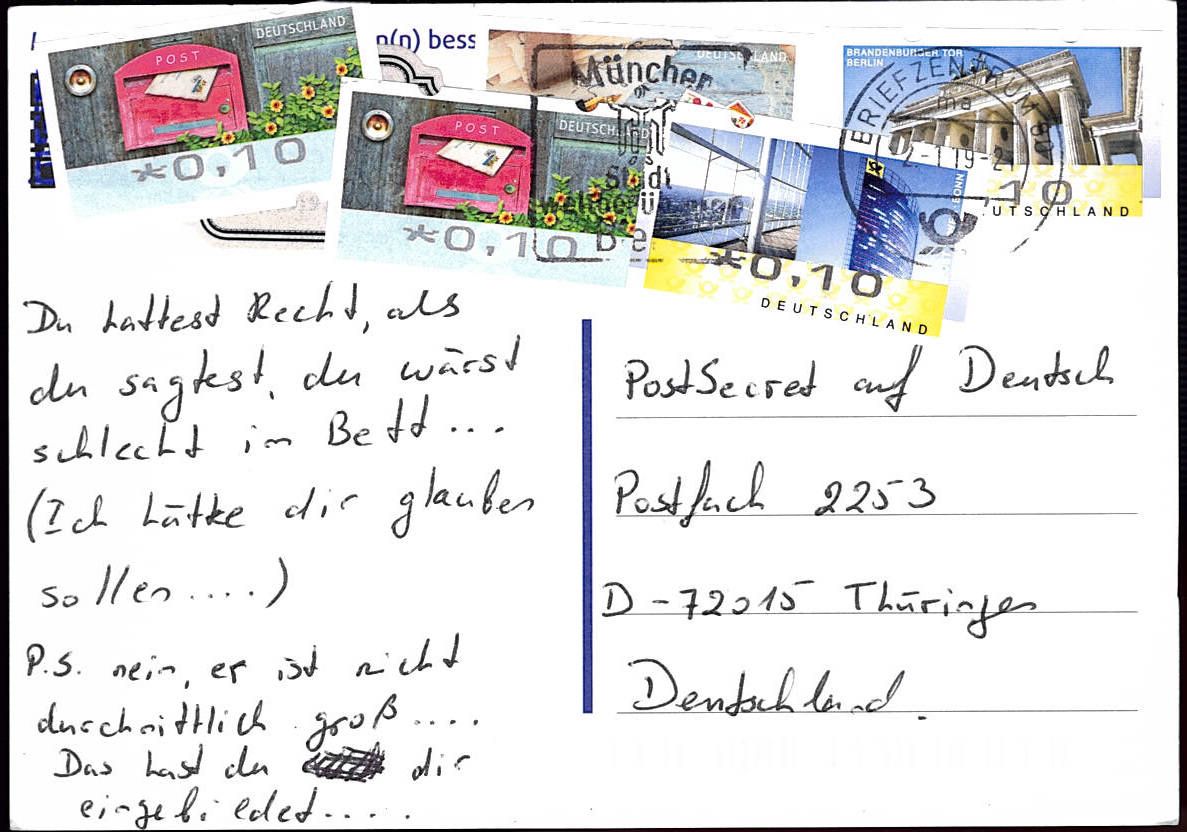 n(n) bess
DEUTSCHLAND
POST
*0,10
DEUTSCHLAND
POST
*0,10
DEUTSCHLAND
München
Stadt
BRANDENBURGER TOR
BERLIN
BRIEFZENTRUM
10
DEUTSCHLAND
BONN
*0,10
DEUTSCHLAND
Du hattest Recht, als
du sagtest, du wärst
schlecht im Bett...
(Ich hätte dir glauben
sollen....)
P.S. nein, er ist nicht
durschnittlich groß....
Das hast du dir
eingebildet.....
PostSecret auf Deutsch
Postfach 2253
D-72015 Thüringen
Deutschland.